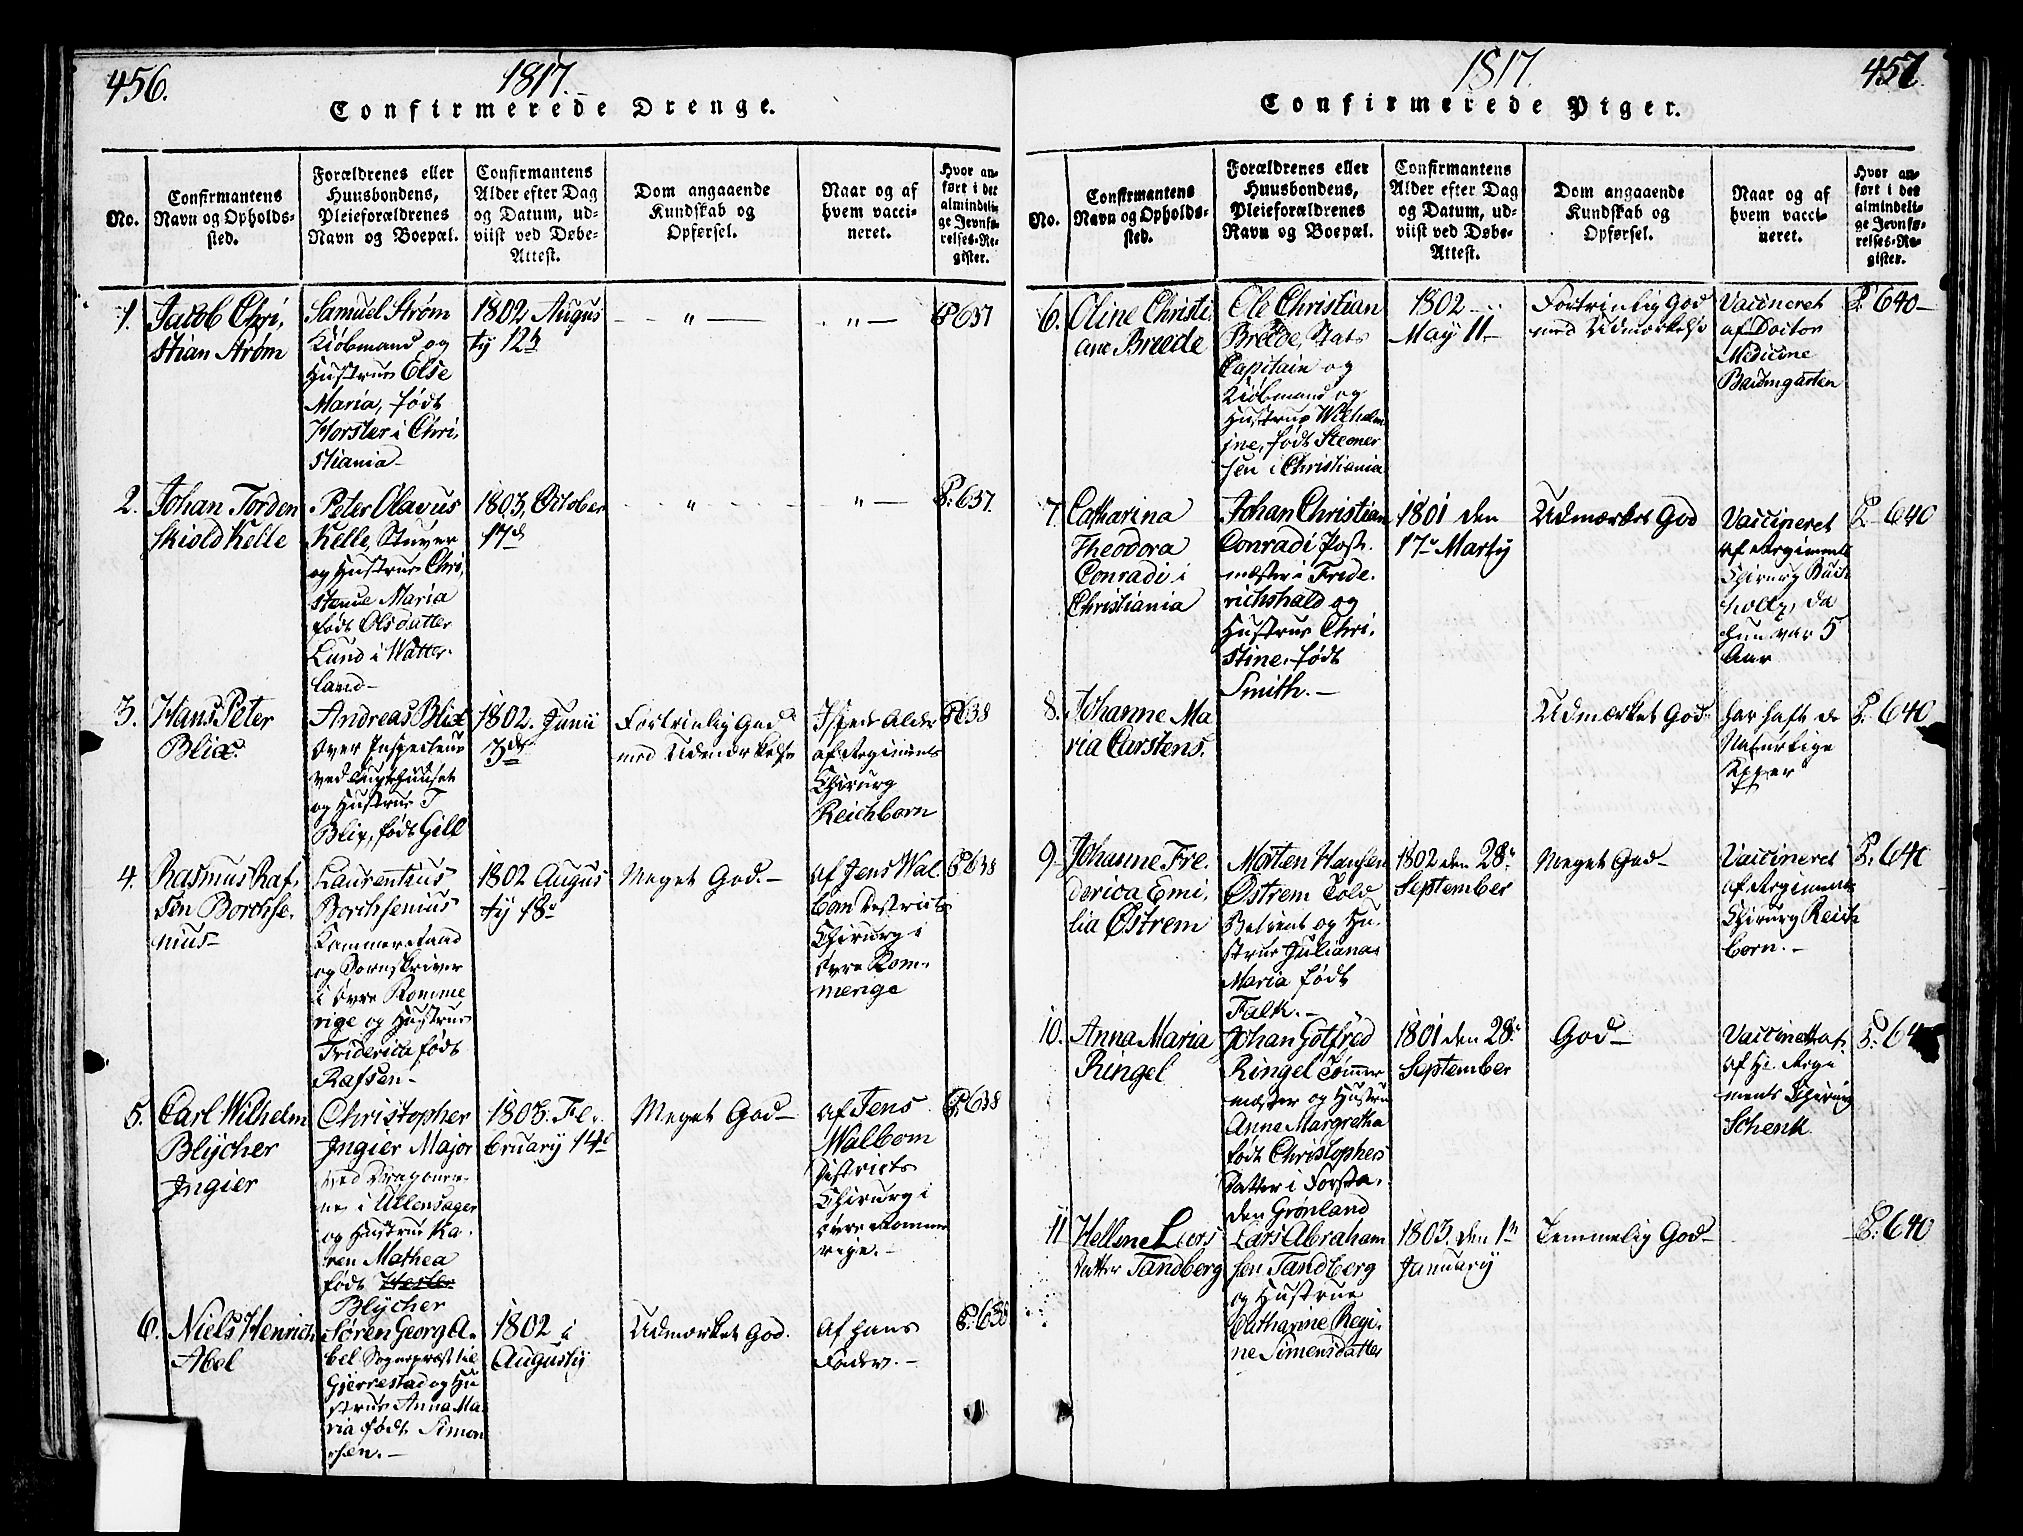 456.
1817.
Confirmerede Drenge.
No.
Confirmantens
Navn og Opholds-
sted.
Forældrenes eller
Huusbondens,
Pleieforældrenes
Navn og Boepæl.
Confirmantens
Alder efter Dag
og Datum, ud-
viist ved Døbe-
Attest.
Dom angaaende
Kundskab og
Opførsel.
Naar og af
hvem vacci-
neret.
Hvor an-
ført i det
almindeli-
ge Jevnfø-
relses-Re-
gister.
1.
Jacob Chri,
stian Strøm
Samuel Strøm
Kiøbmand og
Hustrue Else
Maria, født
Horster i Chri,
stiania
1802 Augus
ty 12
"
"
P 637
2.
Johan Torden
skiold Kelle
Peter Olavus
Kelle, Stuver
og Hustrue Chri,
stence Maria
født Olsdatter
Lund i Watter-
land
1803, October
17d
"
"
P: 637.
3.
Hans Peter
Blix.
Andreas Blix
Over Inspecteur
ved Tugthuuset
og Hustrue T
Blix, født Gill
1802. Junii
3de
Fortrinlig God
med Udmærkelse
af Regiments
Chirurg
Reichborn
P 638
4.
Rasmus Raf,
sen Borchse,
nius
Laurentius
Borchsenius
Kammerraad
og Sorenskriver
i Øvre Romme
rige og Hustrue
Friderica født
Rafsen
1802 Augus
ty 18
Meget God.
af Jens Wal
bom Districts
Chirurg i
Øvre Rom-
merige
P 638
5.
Carl Wilhelm
Blÿcher
Ingier
Christopher
Ingier Major
ved Dragoner-
ne i Ullensager
og Hustrue Ka,
ren Mathea
født Hesler
Blÿcher
1803. Fe,
bruary 14
Meget God
af Jens
Walbom
Districts
Chirurg i
Øvre Romme
rige.
P: 638
6.
Niels Henrich
Abel
Søren Georg A-
bel Sognepræst til
Gjerrestad og Hu
strue Anna Ma,
ria født Simon
sen.
1802 i
Augusty
Udmærket God.
af hans
Fader.
P: 638
1817.
457.
Confirmerede Piger.
No.
Confirmantens
Navn og Opholds-
sted.
Forældrenes eller
Huusbondens,
Pleieforældrenes
Navn og Boepæl.
Confirmantens
Alder efter Dag
og Datum, ud-
viist ved Døbe-
Attest.
Dom angaaende
Kundskab og
Opførsel.
Naar og af
hvem vacci-
neret.
Hvor an-
ført i det
almindeli-
ge Jevnfø-
relses-Re-
gister.
6.
Oline Christi
ane Breede
Ole Christian
Breede, Stats
Capitain og
Kiøbmand og
Hustrue Wilhelm
ine, født Steener
sen i Christiania
1802
May 11
Fortrinlig God
med Udmærkelse
Vaccineret
af Doctor
Medicine
Baumgarten
P. 640
7
Catharina
Theodora
Conradi i
Christiania
Johan Christian
Conradi Post-
mæster i Frede,
richshald og
Hustrue Chri,
stine, født
Smith.
1801 den
17 Marty
Udmærket God
Vaccineret
af Regiments
Chirurg Buch
holtz, da
hun var 5
Aar
P. 640
8.
Johanne Ma
ria Carstens.
Udmærket God.
har haft de
Naturlige
Kopper
P. 640
9.
Johanne Fre,
derica Emi,
lia Østrem
Morten Hansen
Østrem Told
Betient og Hu,
strue Juliana
Maria født
Falk.
1802 den 28
September
Meget God
Vaccineret
af Regiments
Chirurg Reich
born.
P. 640
10.
Anna Maria
Ringel
Johan Gotfred
Ringel Tømmer
mæster og Hustrue
Anne Margretha
født Christophers
datter i Forsta,
den Grønland
1801 den 28
September
God
Vaccineret
af Hr. Regi
ments Chirurg
Schenk
P. 64
11
Hellene Lars
datter Tandberg
Lars Abraham
sen Tandberg
og Hustrue
Catharine Regi,
ne Simensdatter
1803. den 1
January
Temmelig God
P. 640